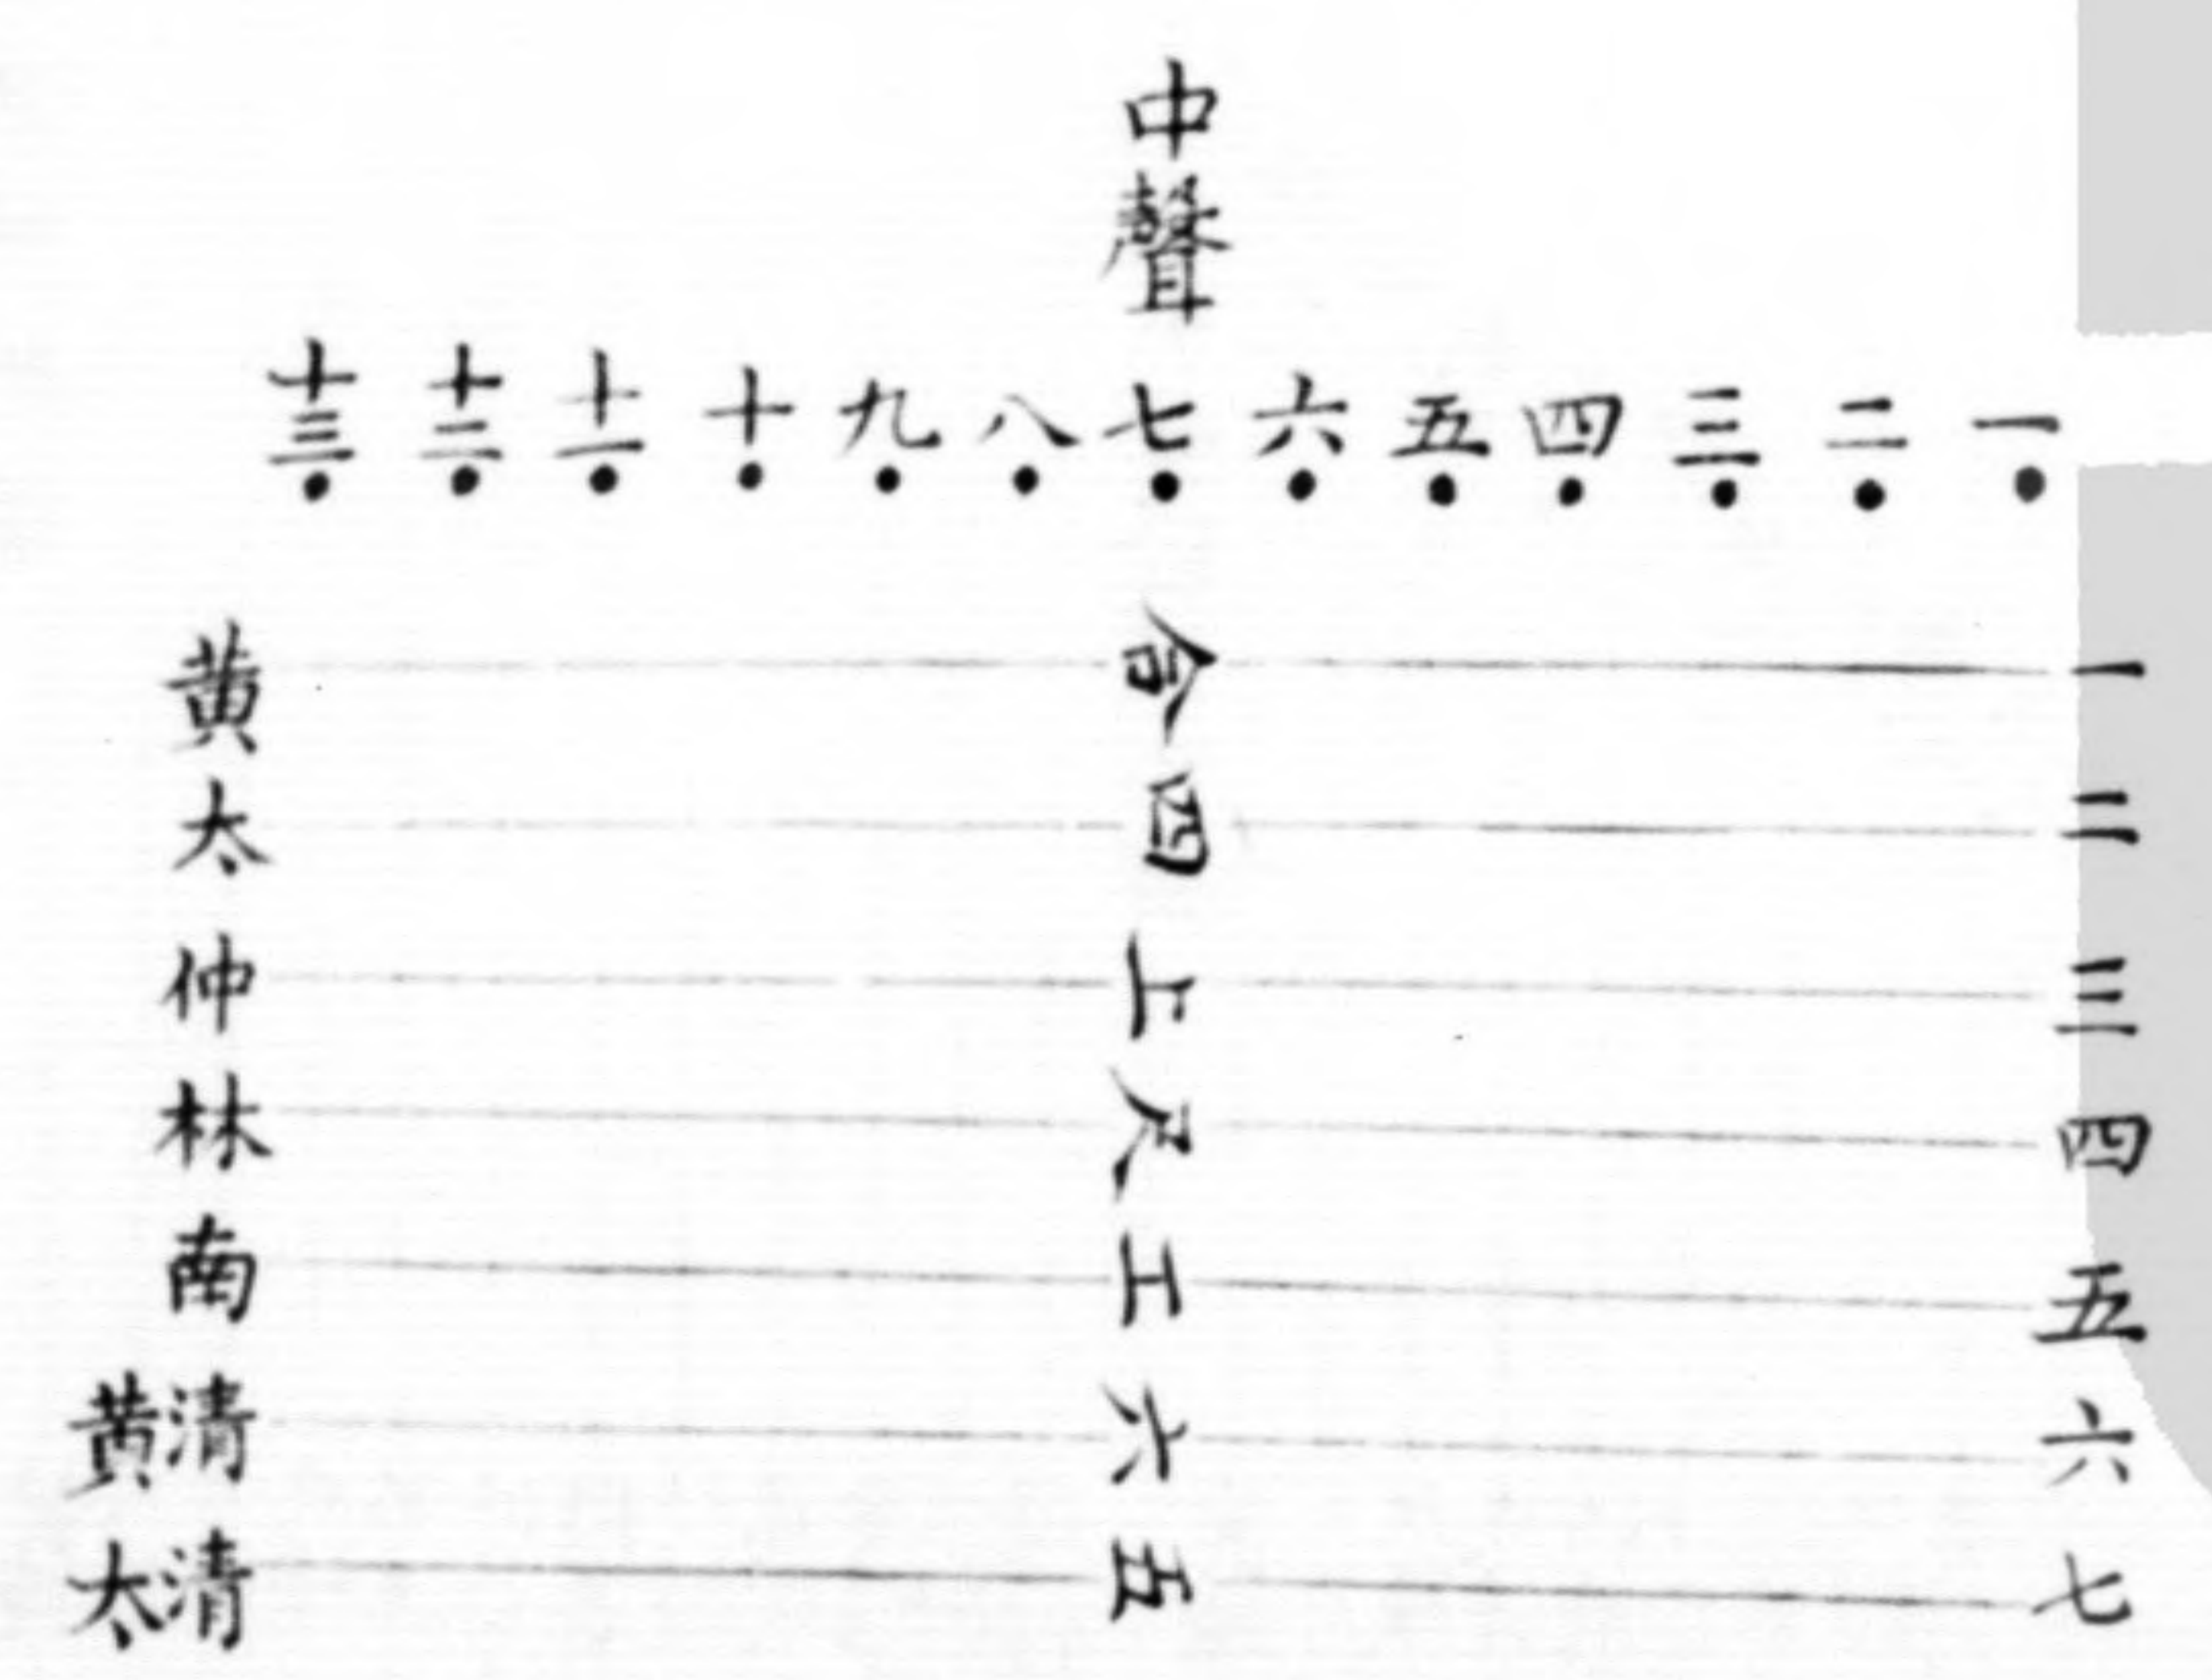 中聲
一 二 三 四 五 六 七 八 九 十 十一 十二 十三
一 合 黄
二 四 太
三 上 仲
四 尺 林
五 工 南
六 六 黄清
七 五 太清